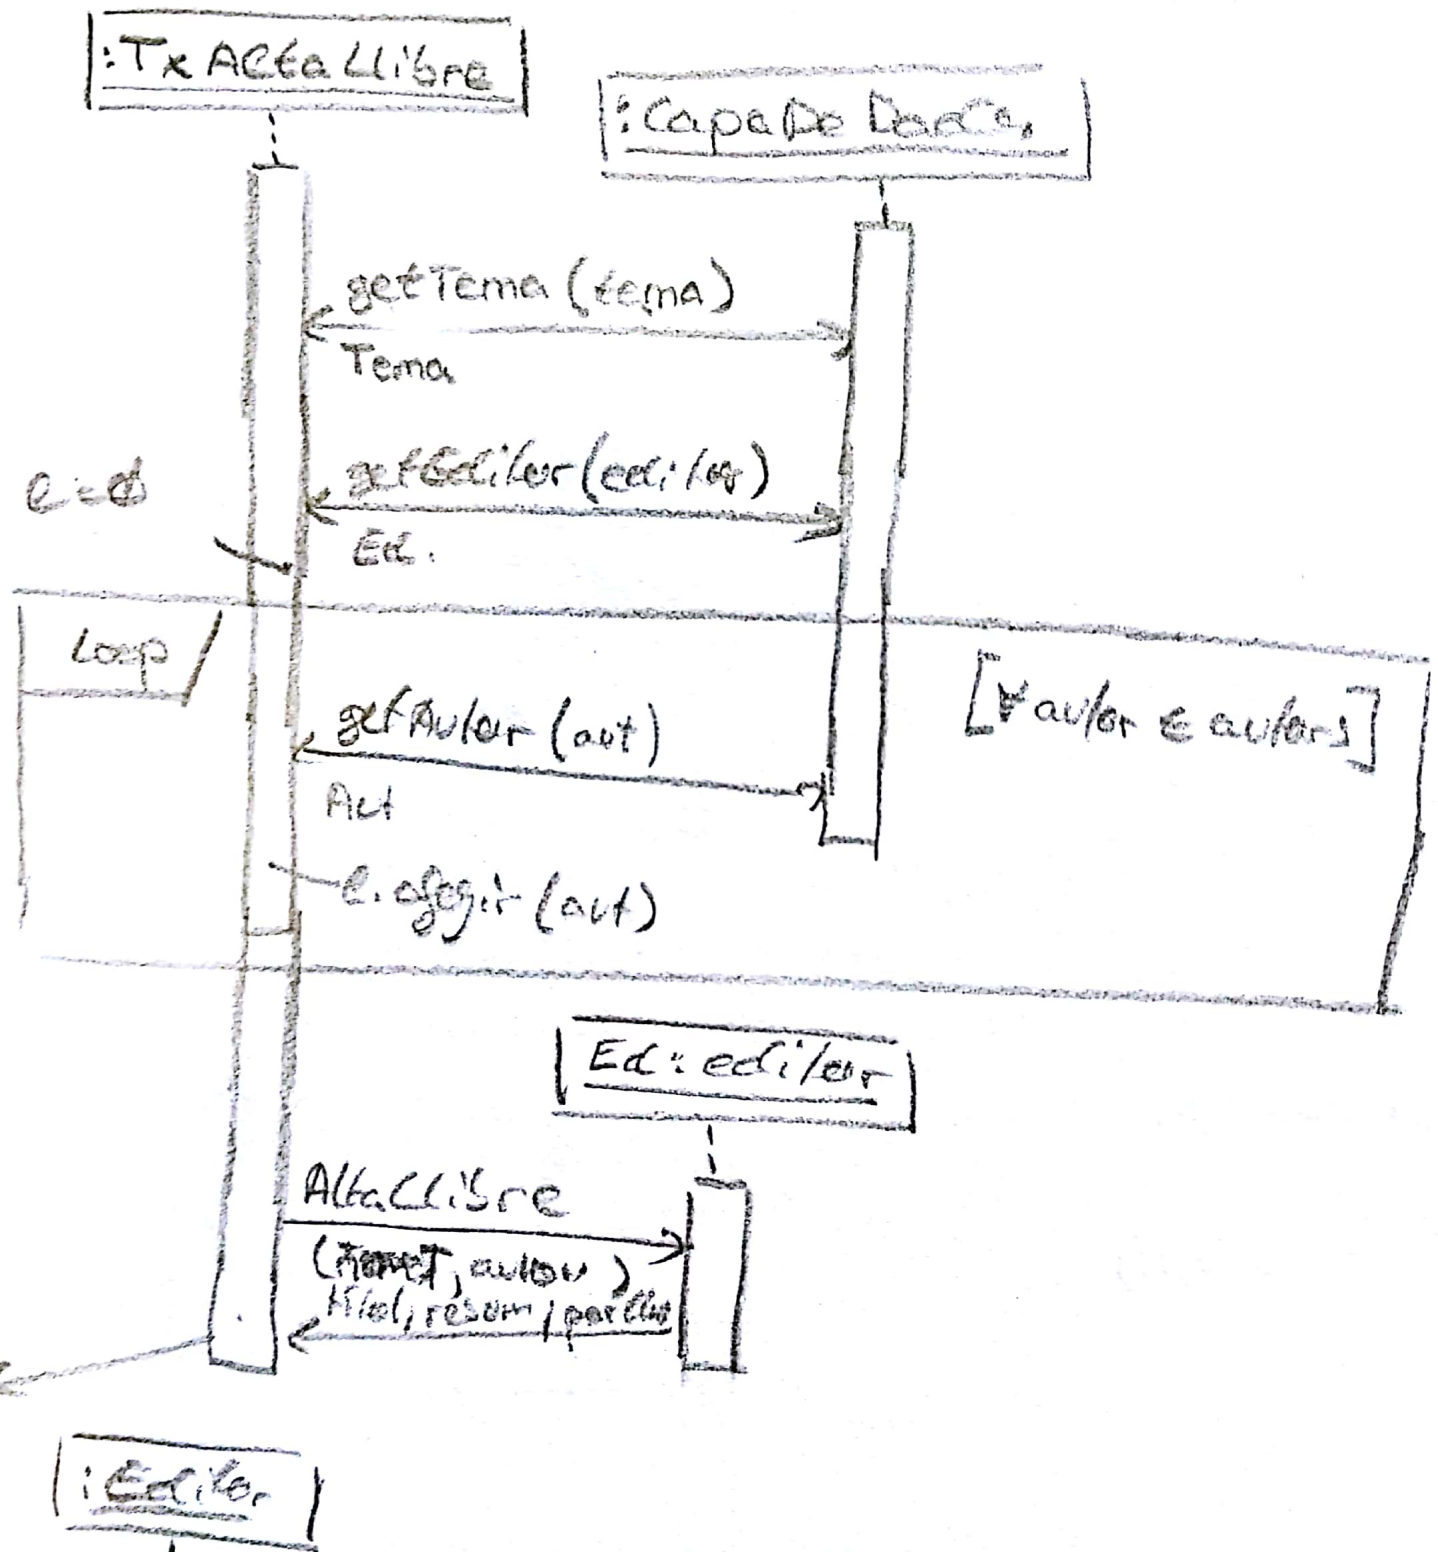 :TxAltaLlibre
:CapaDe
getTema (tema)
Tema
getEditor (editor)
Ed.
Loop
[∀ autor ∈ autors]
getAutor (aut)
Aut
l. afegir (aut)
Ed: editor
AltaLlibre
titol, resum,
:Editor